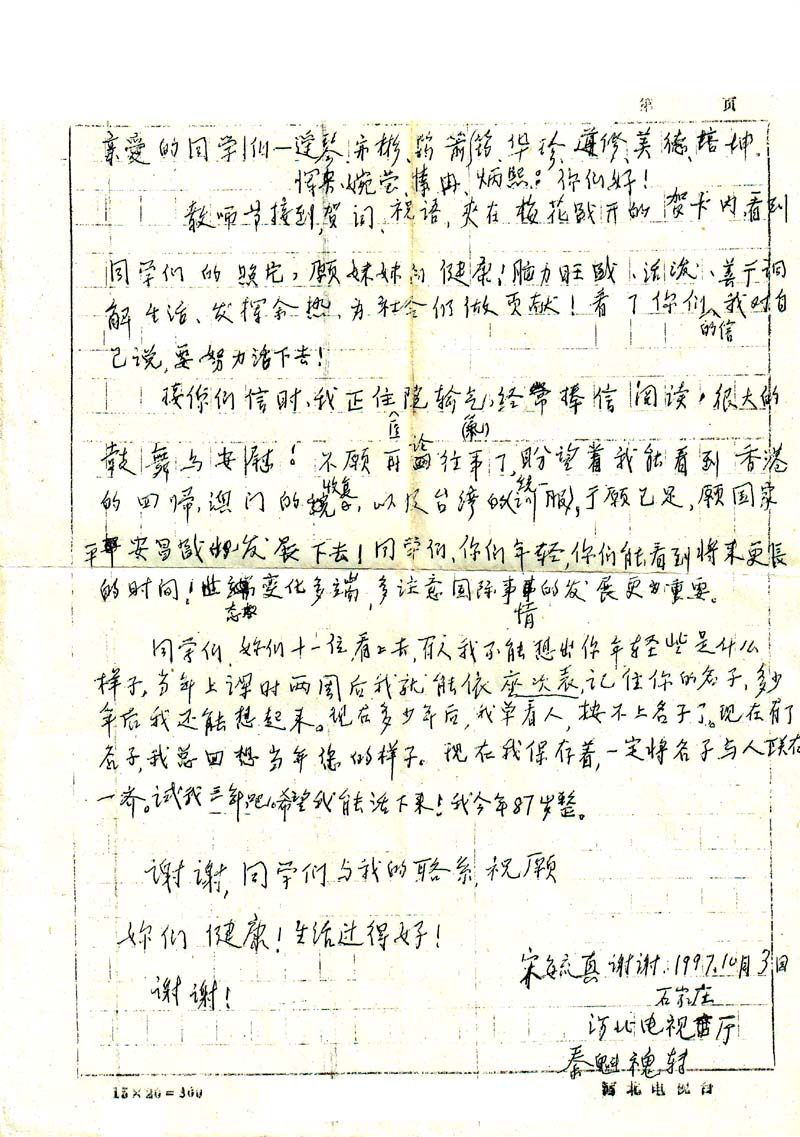 第 页
亲爱的同学们—
婉莹、炳照:你们好!
教师节接到贺词、祝语,夹在梅花盛开的贺卡内,看到
同学们的照片,愿妹妹们健康!脑力旺盛、活泼、善于调
解生活、发挥余热,为社会们做贡献!看了你们的信,我对自
己说,要努力活下去!
接你们信时,我正住医院输气(氧),经常捧信阅读,很大的
鼓舞与安慰!不愿再论往事了,盼望着我能看到香港
的回归,澳门的收复,以及台湾的统一,于愿已足,愿国家
平安昌盛地发展下去!同学们,你们年轻,你们能看到将来更长
的时间!世态变化多端,多注意国际事情的发展更为重要。
同学们,妳们十一位看上去,有人我不能想出你年轻些是什么
样子,当年上课时两周后我就能依座次表,记住你的名子,多少
年后我还能想起来。现在多少年后,我单看人,按不上名子了。现在有了
名子,我总回想当年您的样子。现在我保存着,一定将名子与人联在
一齐。试我三年吧!希望我能活下来!我今年87岁整。
谢谢,同学们与我的联系,祝愿
妳们健康!生活过得好!
宋毓真谢谢.1997.10月3日
谢谢!
石家庄
河北电视厅
秦魁 转
15×20=300 河北电视台